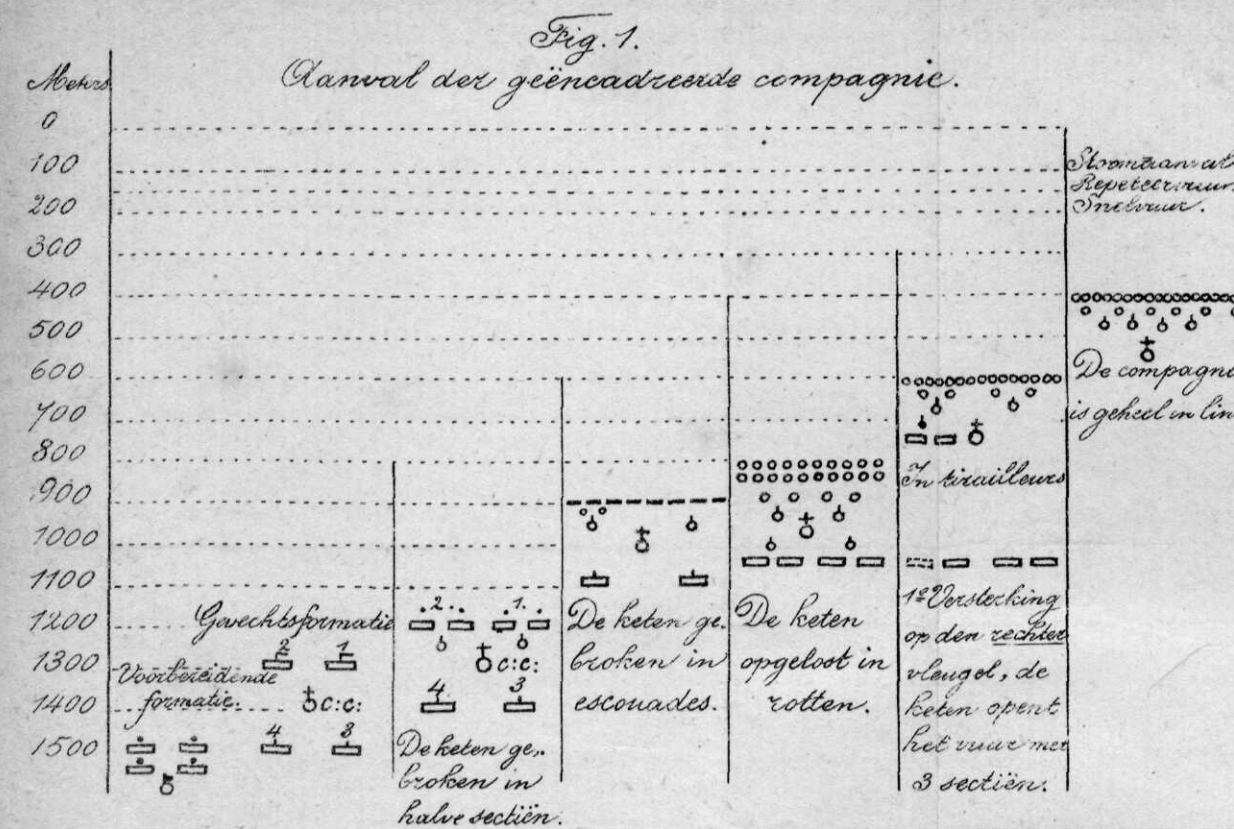 Fig. 1.
Aanval der geëncadreerde compagnie.
Meters
0
100
200
300
400
500
600
700
800
900
1000
1100
1200
1300
1400
1500
Voorbereidende
formatie.
Gevechtsformatie
2 1
c:c:
4 3
2. 1.
c:c:
4 3
De keten ge„
broken in
halve sectiën.
De keten ge„
broken in
escouades.
De keten
opgelost in
rotten.
In tirailleurs
1e Versterking
op den rechter
vleugel, de
keten opent
het vuur met
3 sectiën.
Stormaanval
Repeteervuur
Snelvuur.
De compagni
is geheel in lin